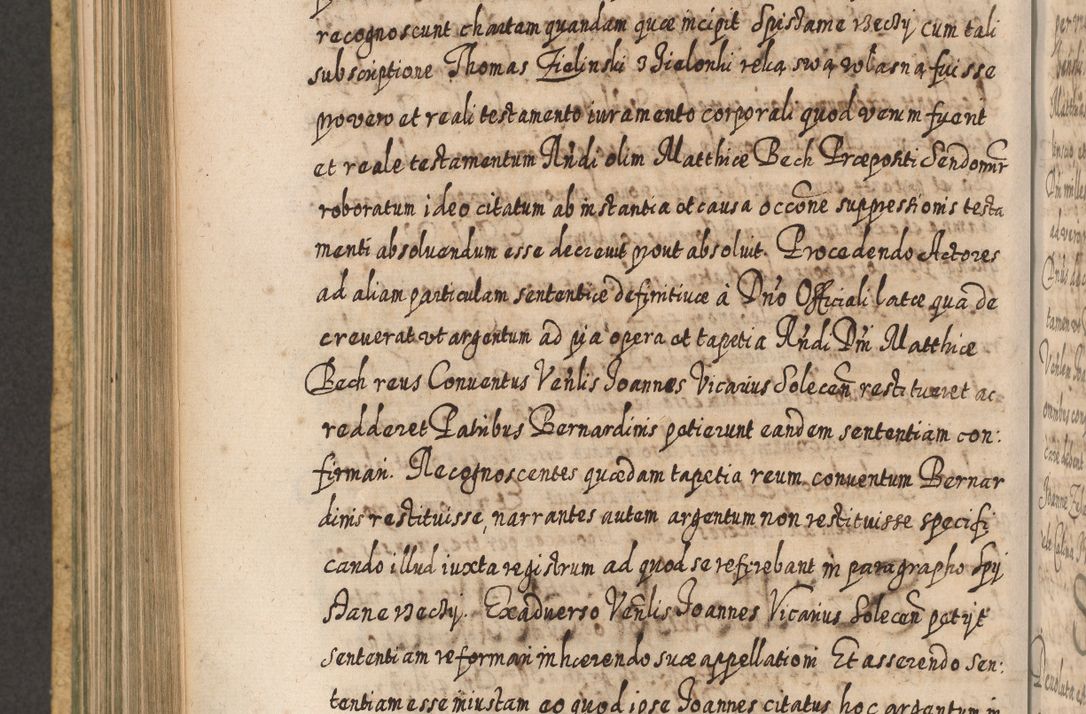 recognoscunt chartam quandam quæ incipit Spistame rzeczy cum tali
subscriptione Thomas Zielinski z Zielonki ręką swą własną fuisse
pro vero et reali testamento iuramento corporali quod verum fuerit
et reale testamentum Rñdi olim Matthiæ Bech Præpositi Sendomir
roboratum ideo citatum ab instantia et causa occõne suppressionis testa
menti absoluendum esse decreuit prout absoluit. Procedendo Actores
ad aliam particulam sententiæ definitiuæ à Dño Officiali latæ qua de
creuerat vt argentum ad pia opera et tapetia Rñdi Dñi Matthiæ
Bech reus Conuentus Veñlis Joannes Vicarius Soleceñ restitueret ac
redderet Patribus Bernardinis petierunt eandem sententiam con:
firmari. Recognoscentes quædam tapetia reum conuentum Bernar
dinis restituisse, narrantes autem argentum non restituisse specifi
cando illud iuxta registrum ad quod se refferebant in paragrapho Spi
stane rzeczy. Exaduerso Veñlis Joannes Vicarius Soleceñ petijt
sententiam reformari inhærendo suæ appellationi Et asserendo sen:
tentiam esse iniustam eo quod ipse Joannes citatus hoc argentum in